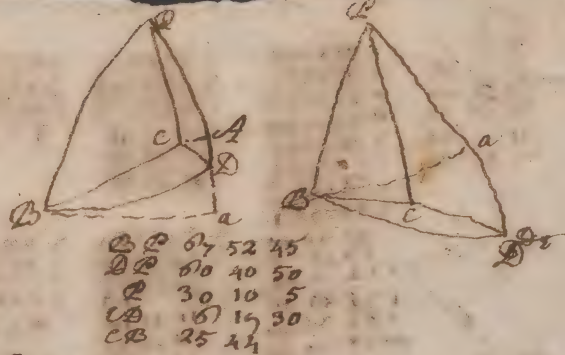 P P
C A a
D
B B C
a D
B P 67 52 45
D P 60 40 50
P 30 10 5
C D 6 19 30
C B 25 44